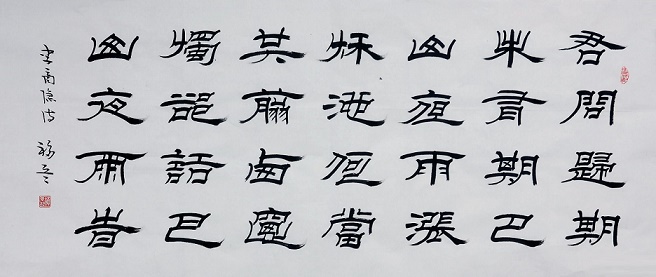 君問歸期
未有期巴
山夜雨漲
秋池何當
共翦西窗
燭卻話巴
山夜雨旹
李商隱詩